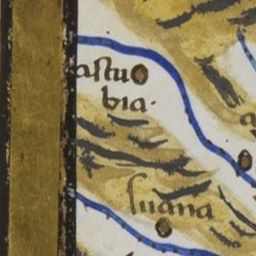 astu
bia·
luana
a